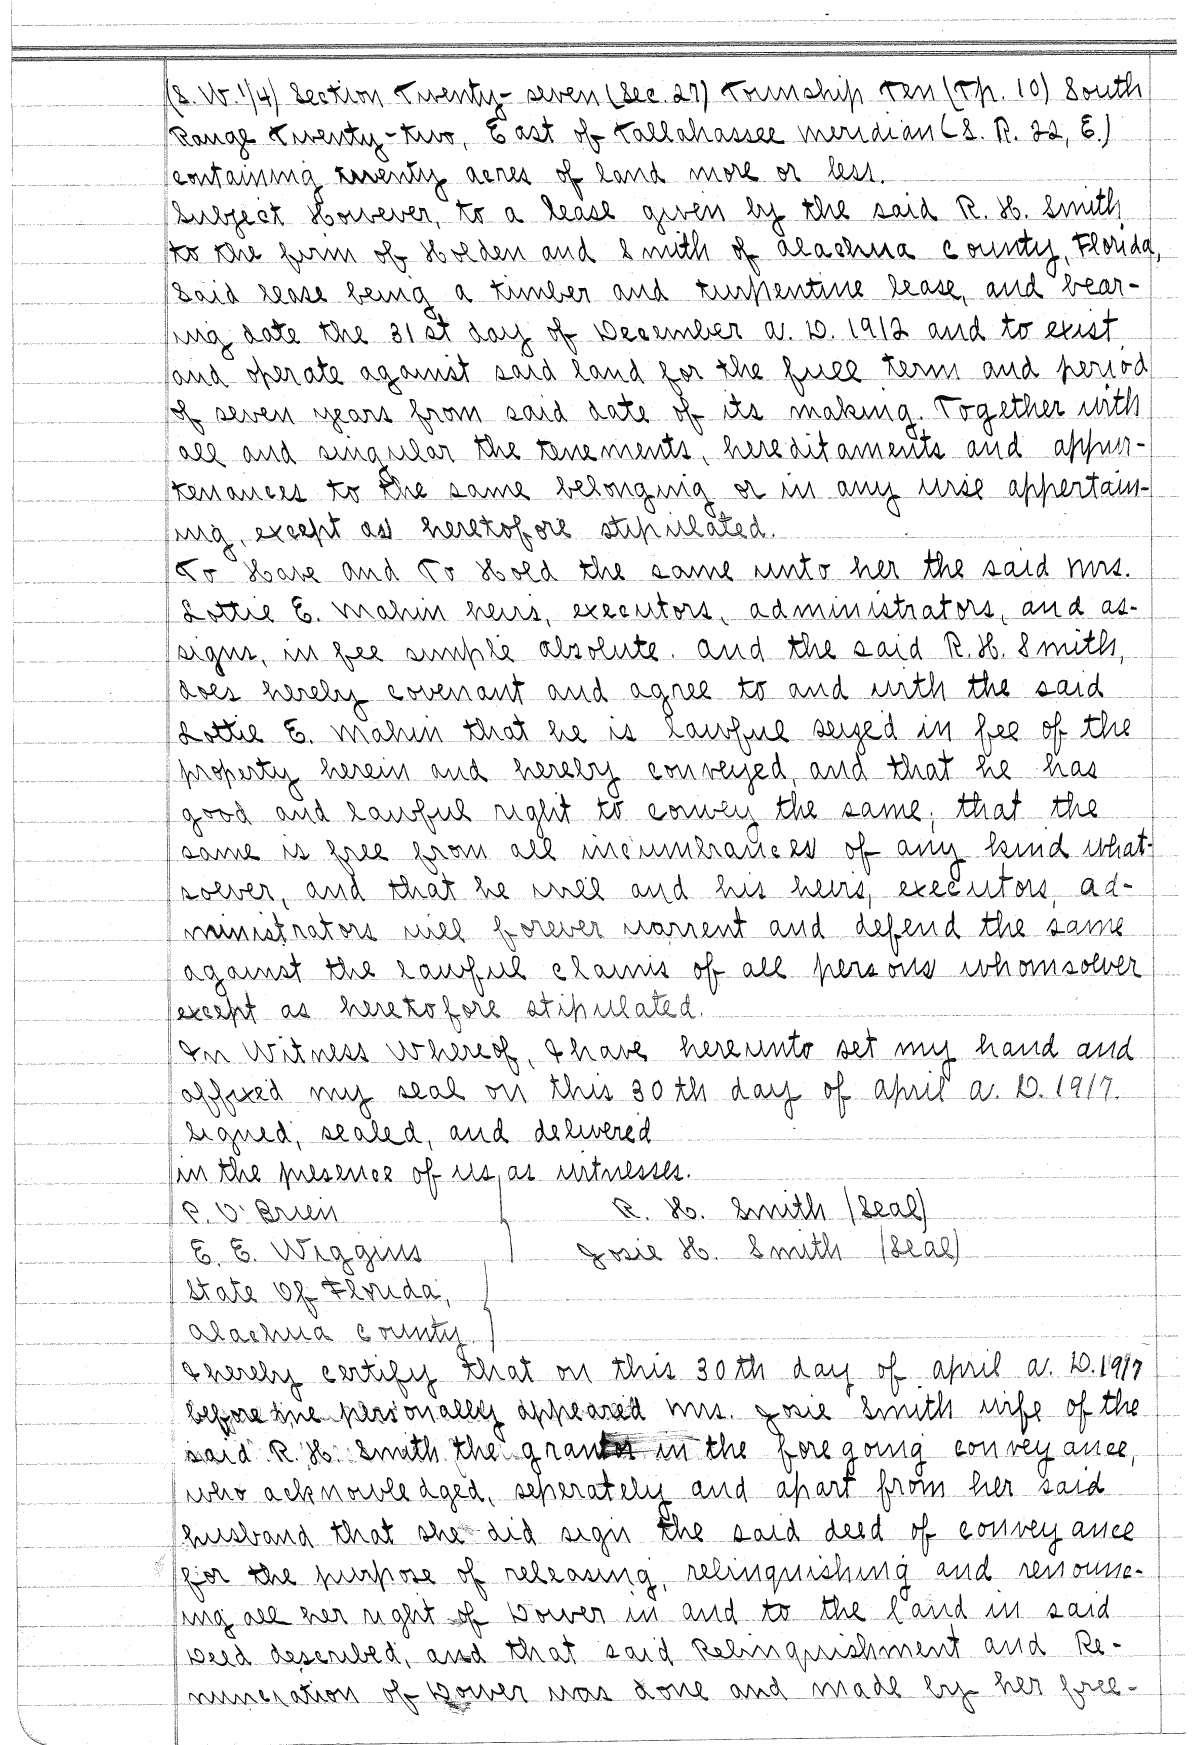 (S. W. 1/4) Section Twenty-seven (Sec. 27) Township Ten (Tp. 10) South
Range Twenty-two, East of Tallahassee meridian (S. R. 22, E.)
containing twenty acres of land more or less.
Subject However, to a lease given by the said R. H. Smith
to the firm of Holden and Smith of Alachua County, Florida,
Said lease being a timber and turpentine lease, and bear-
ing date the 31st day of December A. D. 1912 and to exist
and operate against said land for the full term and period
of seven years from said date of its making. Together with
all and singular the tenements, hereditaments and appur-
tenances to the same belonging or in any wise appertain-
ing, except as heretofore stipulated.
To Have and To Hold the same unto her the said Mrs.
Lottie E. Mahin heirs, executors, administrators, and as-
signs, in fee simple absolute. And the said R. H. Smith,
does hereby covenant and agree to and with the said
Lottie E. Mahin that he is lawful seized in fee of the
property herein and hereby conveyed, and that he has
good and lawful right to convey the same; that the
same is free from all incumbrances of any kind what-
soever, and that he will and his heirs, executors, ad-
ministrators will forever warrent and defend the same
against the lawful claims of all persons whomsoever
except as heretofore stipulated.
In Witness Whereof, I have hereunto set my hand and
affixed my seal on this 30th day of April A. D. 1917.
Signed, sealed, and delivered
in the presence of us, as witnesses.
P. O'Brien R. H. Smith (Seal)
E. E. Wiggins Josie H. Smith (Seal)
State Of Florida,
Alachua County.
I hereby certify that on this 30th day of April A. D. 1917
before me personally appeared Mrs. Josie Smith wife of the
said R. H. Smith the grantor in the foregoing conveyance,
who acknowledged, seperately and apart from her said
husband that she did sign the said deed of conveyance
for the purpose of releasing, relinquishing and renounc-
ing all her right of Dower in and to the land in said
Deed described, and that said Relinquishment and Re-
nunciation of Dower was done and made by her free-